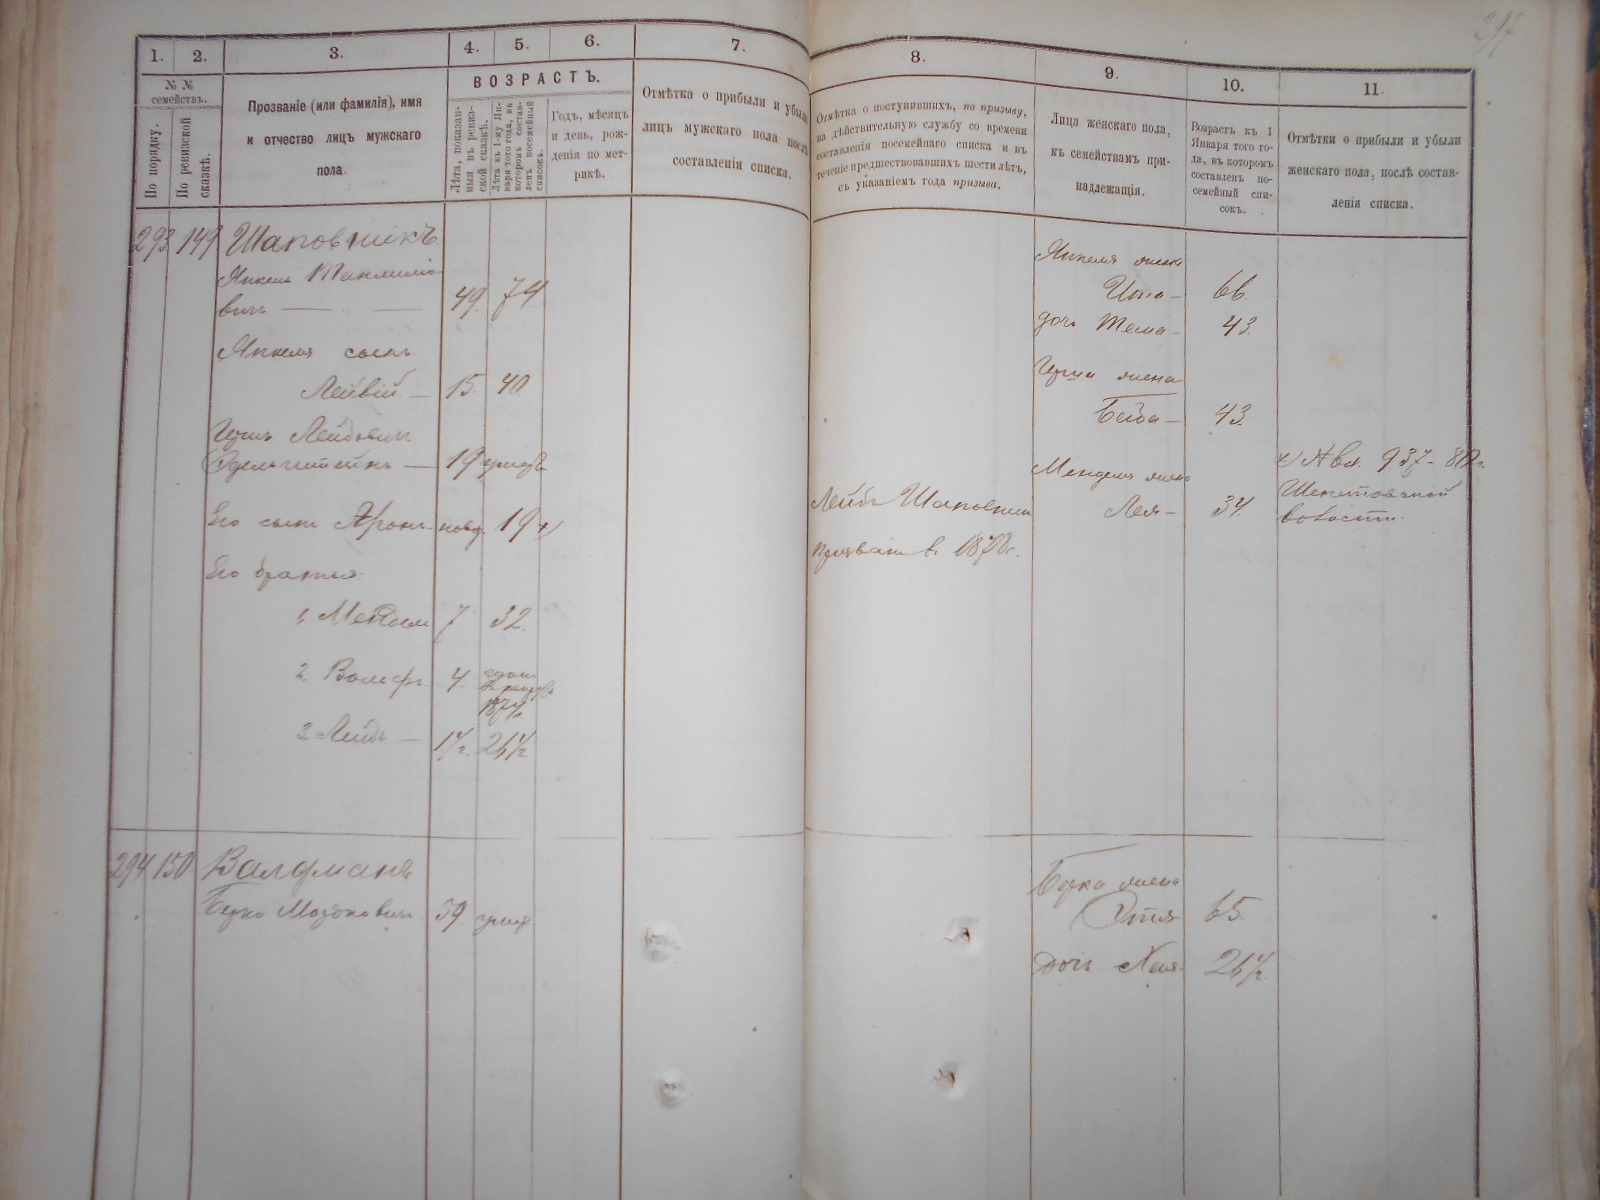 297
1. 2. 3. 4. 5. 6. 7. 8. 9. 10. 11.
№ № семействъ.
По порядку.
По ревизской сказкѣ.
Прозваніе (или фамилія), имя
и отчество лицъ мужскаго
пола.
ВОЗРАСТЪ.
Лѣта, показан-
ныя въ ревиз-
ской сказкѣ.
Лѣта къ 1-му Ян-
варя того года, въ
которомъ состав-
ленъ посемейный
списокъ.
Годъ, мѣсяцъ
и день, рож-
денія по мет-
рикѣ.
Отмѣтка о прибыли и убыли
лицъ мужскаго пола послѣ
составленія списка.
Отмѣтка о поступившихъ, по призыву,
на дѣйствительную службу со времени
составленія посемейнаго списка и въ
теченіе предшествовавшихъ шести лѣтъ,
съ указаніемъ года призыва.
Лица женскаго пола,
къ семействамъ при-
надлежащія.
Возрастъ къ 1
Января того го-
да, въ которомъ
составленъ по-
семейный спи-
сокъ.
Отмѣтки о прибыли и убыли
женскаго пола, послѣ состав-
ленія списка.
293 149 Шаповникъ
Янкель
вичъ — 49. 74.
Янкеля сынъ
Лейвій — 15. 40
Герш Лейбовичъ
Эдельштейнъ — 19
Его сынъ Аронъ новор. 19
Его братья
1, Мендель 7. 32.
2. Вольфъ 4.
1874
3. Лейбъ — 1½. 26½
Лейбъ Шаповник
призванъ в. 1878г.
Янкеля жена
Ита — 66.
дочь Тема — 43.
Герша жена
Бейла — 43.
Менделя жена
Лея — 34.
937 - 80 г.
Шепетовской
волости.
294 150 Валдманъ
Берко Мордковичъ 59
Берка жена
Этля 65.
дочь Хая 26½.